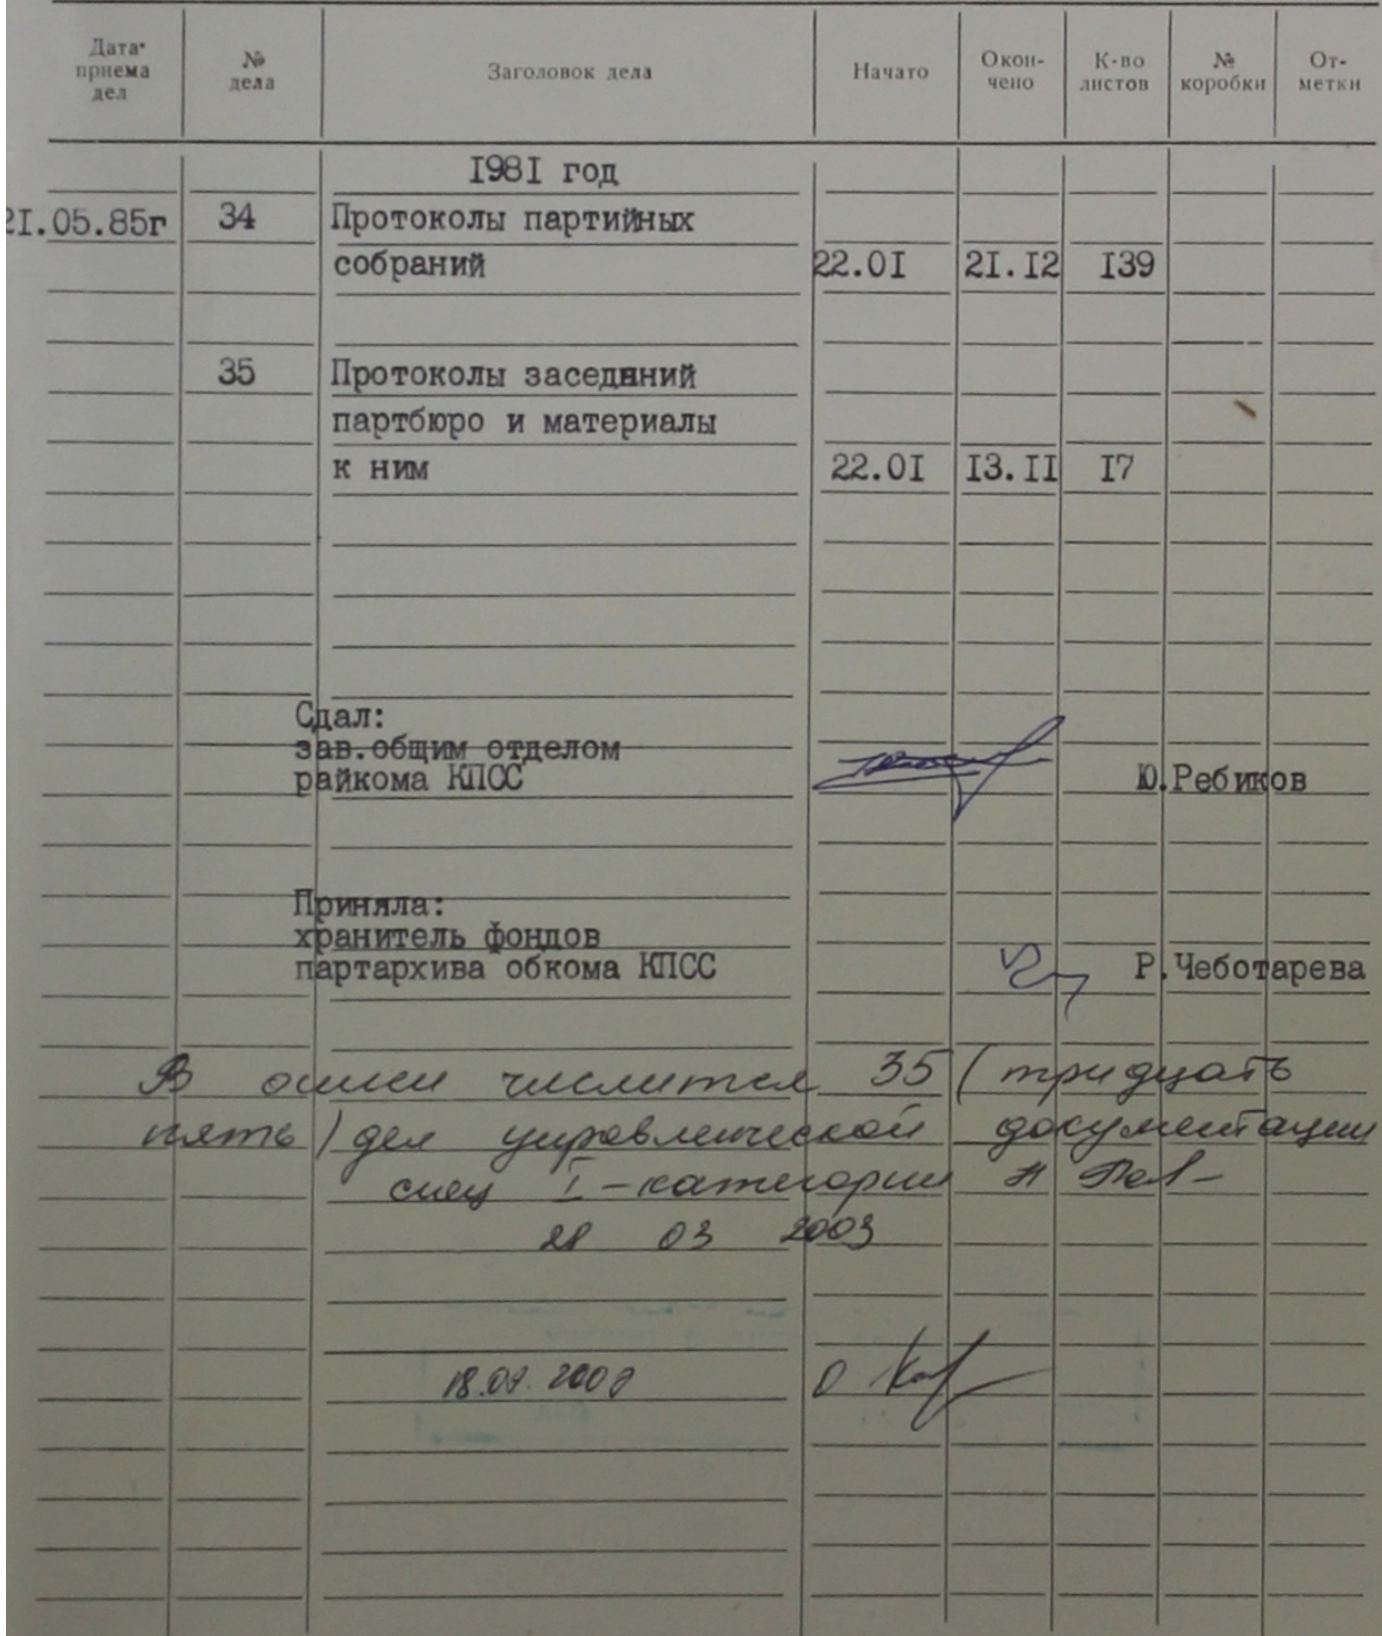 Дата приема дел № дела Заголовок дела Начато Окон- чено К-во листов № коробки От- метки
1981 год
21.05.85г 34 Протоколы партийных
собраний 22.01 21.12 139
35 Протоколы заседаний
партбюро и материалы
к ним 22.01 13.11 17
Сдал:
зав.общим отделом
райкома КПСС Ю.Ребиков
Приняла:
хранитель фондов
партархива обкома КПСС Р.Чеботарева
В описи числится 35 (тридцать
пять) дел управленческой документации
спец I-категории
28 03 2003
18.07.2007